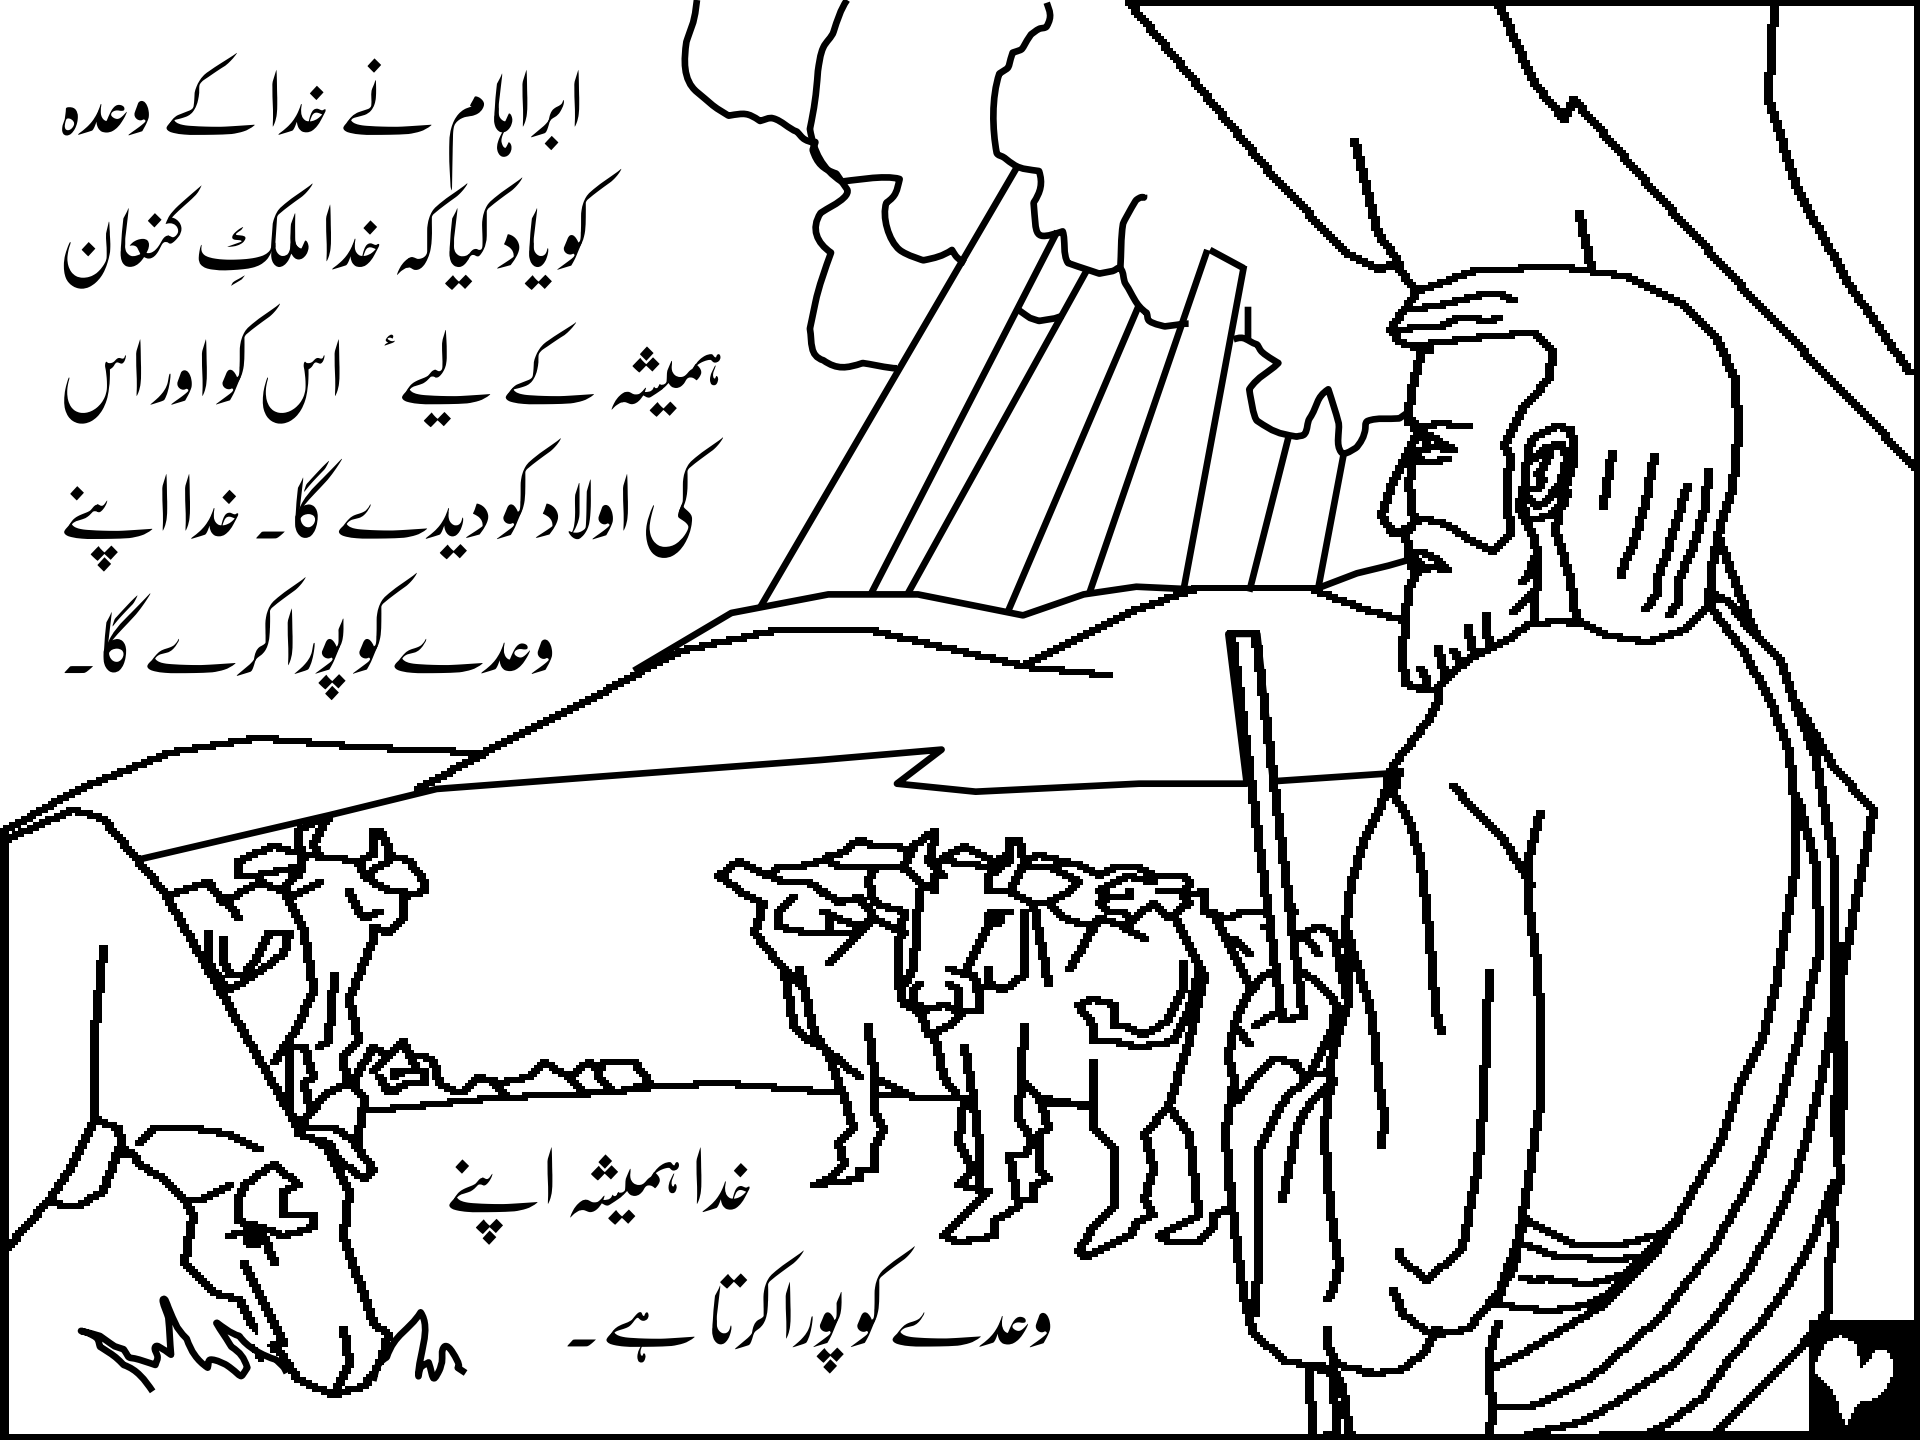 ابراہام نے خدا کے وعدہ
کو یاد کیا کہ خدا ملکِ کنعان
ہمیشہ کے لیے ٔ اس کو اور اس
کی اولاد کو دیدے گا۔ خدا اپنے
وعدے کو پورا کرے گا۔
خدا ہمیشہ اپنے
وعدے کو پورا کرتا ہے ۔